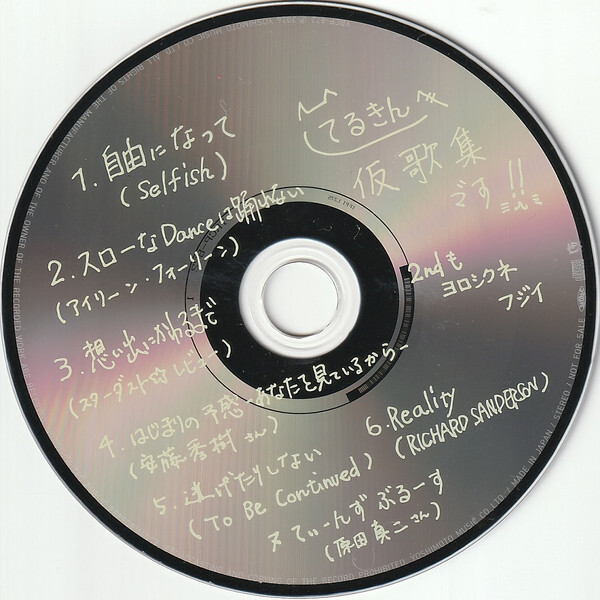 てるきん へ
仮歌集
です!!
1. 自由になって
(Selfish)
2. スローなDanceは踊れない
(アイリーン・フォーリーン)
3. 想い出にかわるまで
(スターダスト☆レビュー)
4. はじまりの予感-あなたを見ているから、
(安藤秀樹 さん)
5. 逃げたりしない
(To Be Continued)
6. Reality
(RICHARD SANDERSON)
てぃーんず ぶるーす
(原田真二さん)
2ndも
ヨロシクネ
フジイ
ALL RIGHTS OF THE MANUFACTURER AND OF THE OWNER OF THE RECORDED WORK
OF THE RECORD PROHIBITED. YOSHIMOTO MUSIC CO.LTD. / MADE IN JAPAN / STEREO / NOT FOR SALE